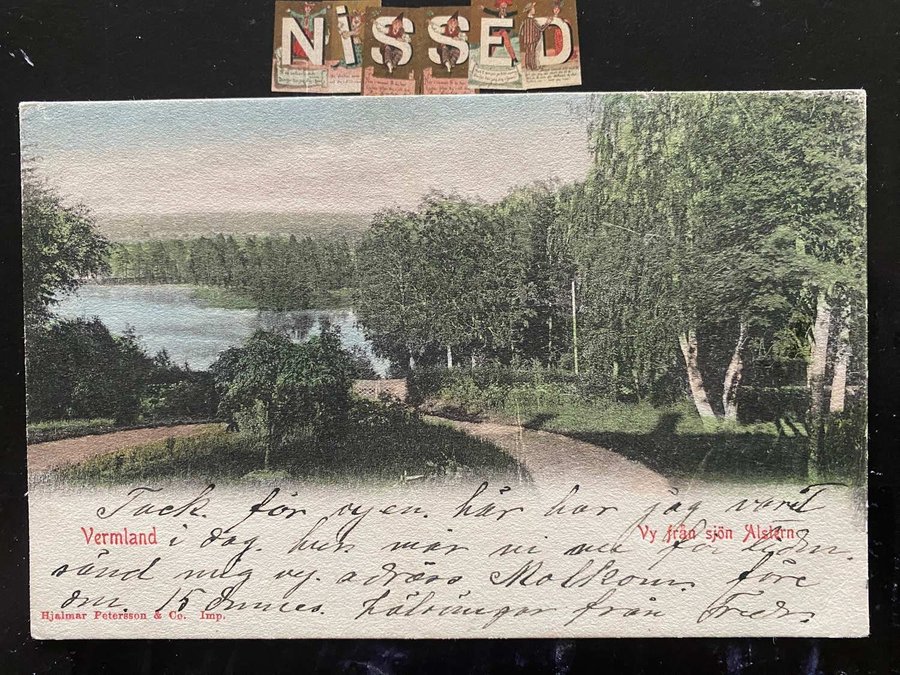 NiSSED
Tack för vyen. här har jag varit
Vermland
i dag. hur mår ni nu för tiden.
Vy från sjön Alstern
sänd mig vy. adräss Molkom före
den. 15 dennes. hälsningar från Fredr.
Hjalmar Petersson & Co. Imp.